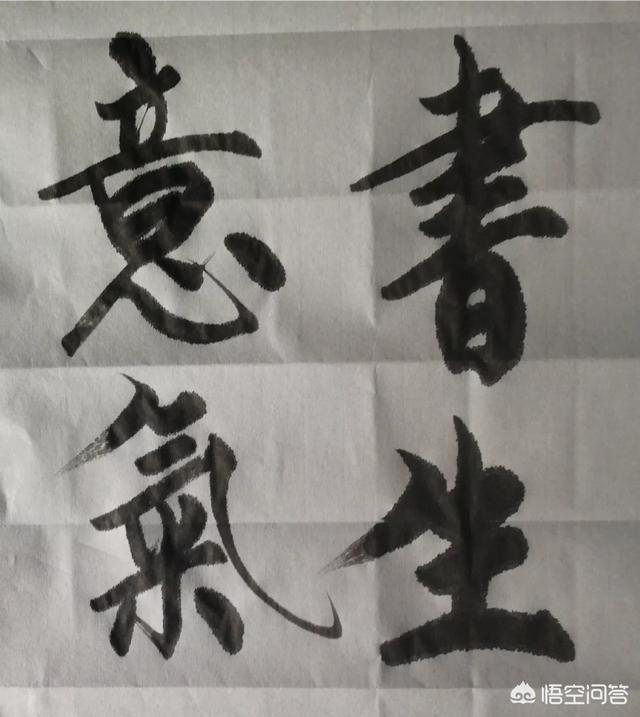 書生
意氣
悟空问答